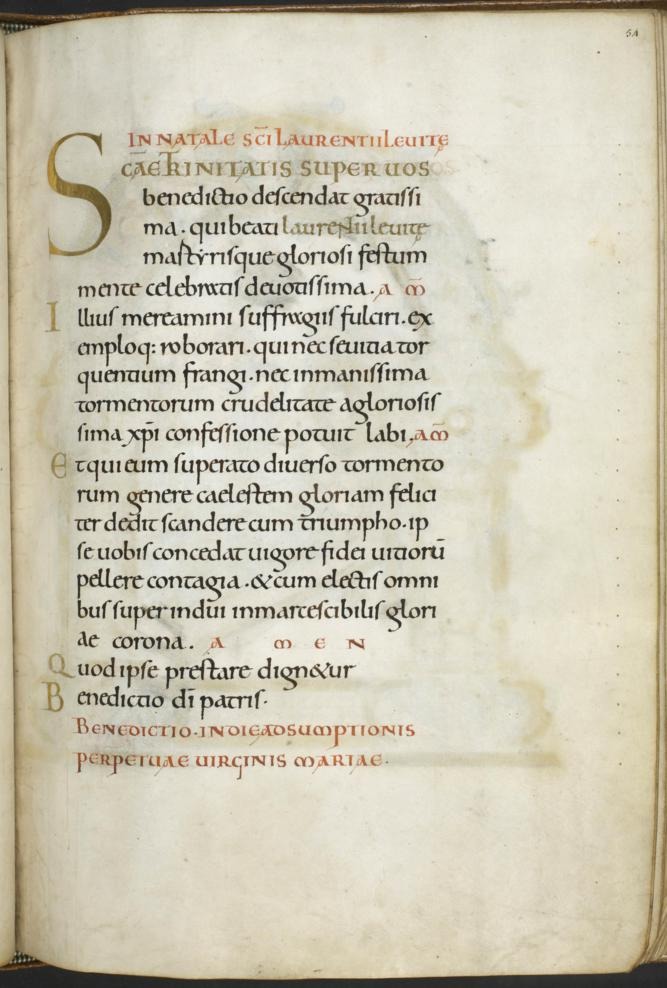 54
IN NATALE SC̄I LAURENTII LEUITE
SCAE TRINITATIS SUPER UOS
benedictio descendat gratissi
ma . qui beati laurentii leuite
martyrisque gloriosi festum
mente celebratis deuotissima . a m̄
Illius mereamini suffragiis fulciri . ex
emploq: roborari . qui nec seuitia tor
quentium frangi . nec inmanissima
tormentorum crudelitate a gloriosis
sima xp̄i confessione potuit labi , a m̄
Et qui eum superato diuerso tormento
rum genere caelestem gloriam felici
ter dedit scandere cum triumpho . ip
se uobis concedat uigore fidei uitiorū
pellere contagia . & cum electis omni
bus super indui inmarcescibilis glori
ae corona . a m e n
Quod ipse prestare dign&ur
Benedictio dī patris .
BENEDICTIO . IN DIE ADSUMPTIONIS
PERPETUAE UIRGINIS MARIAE .